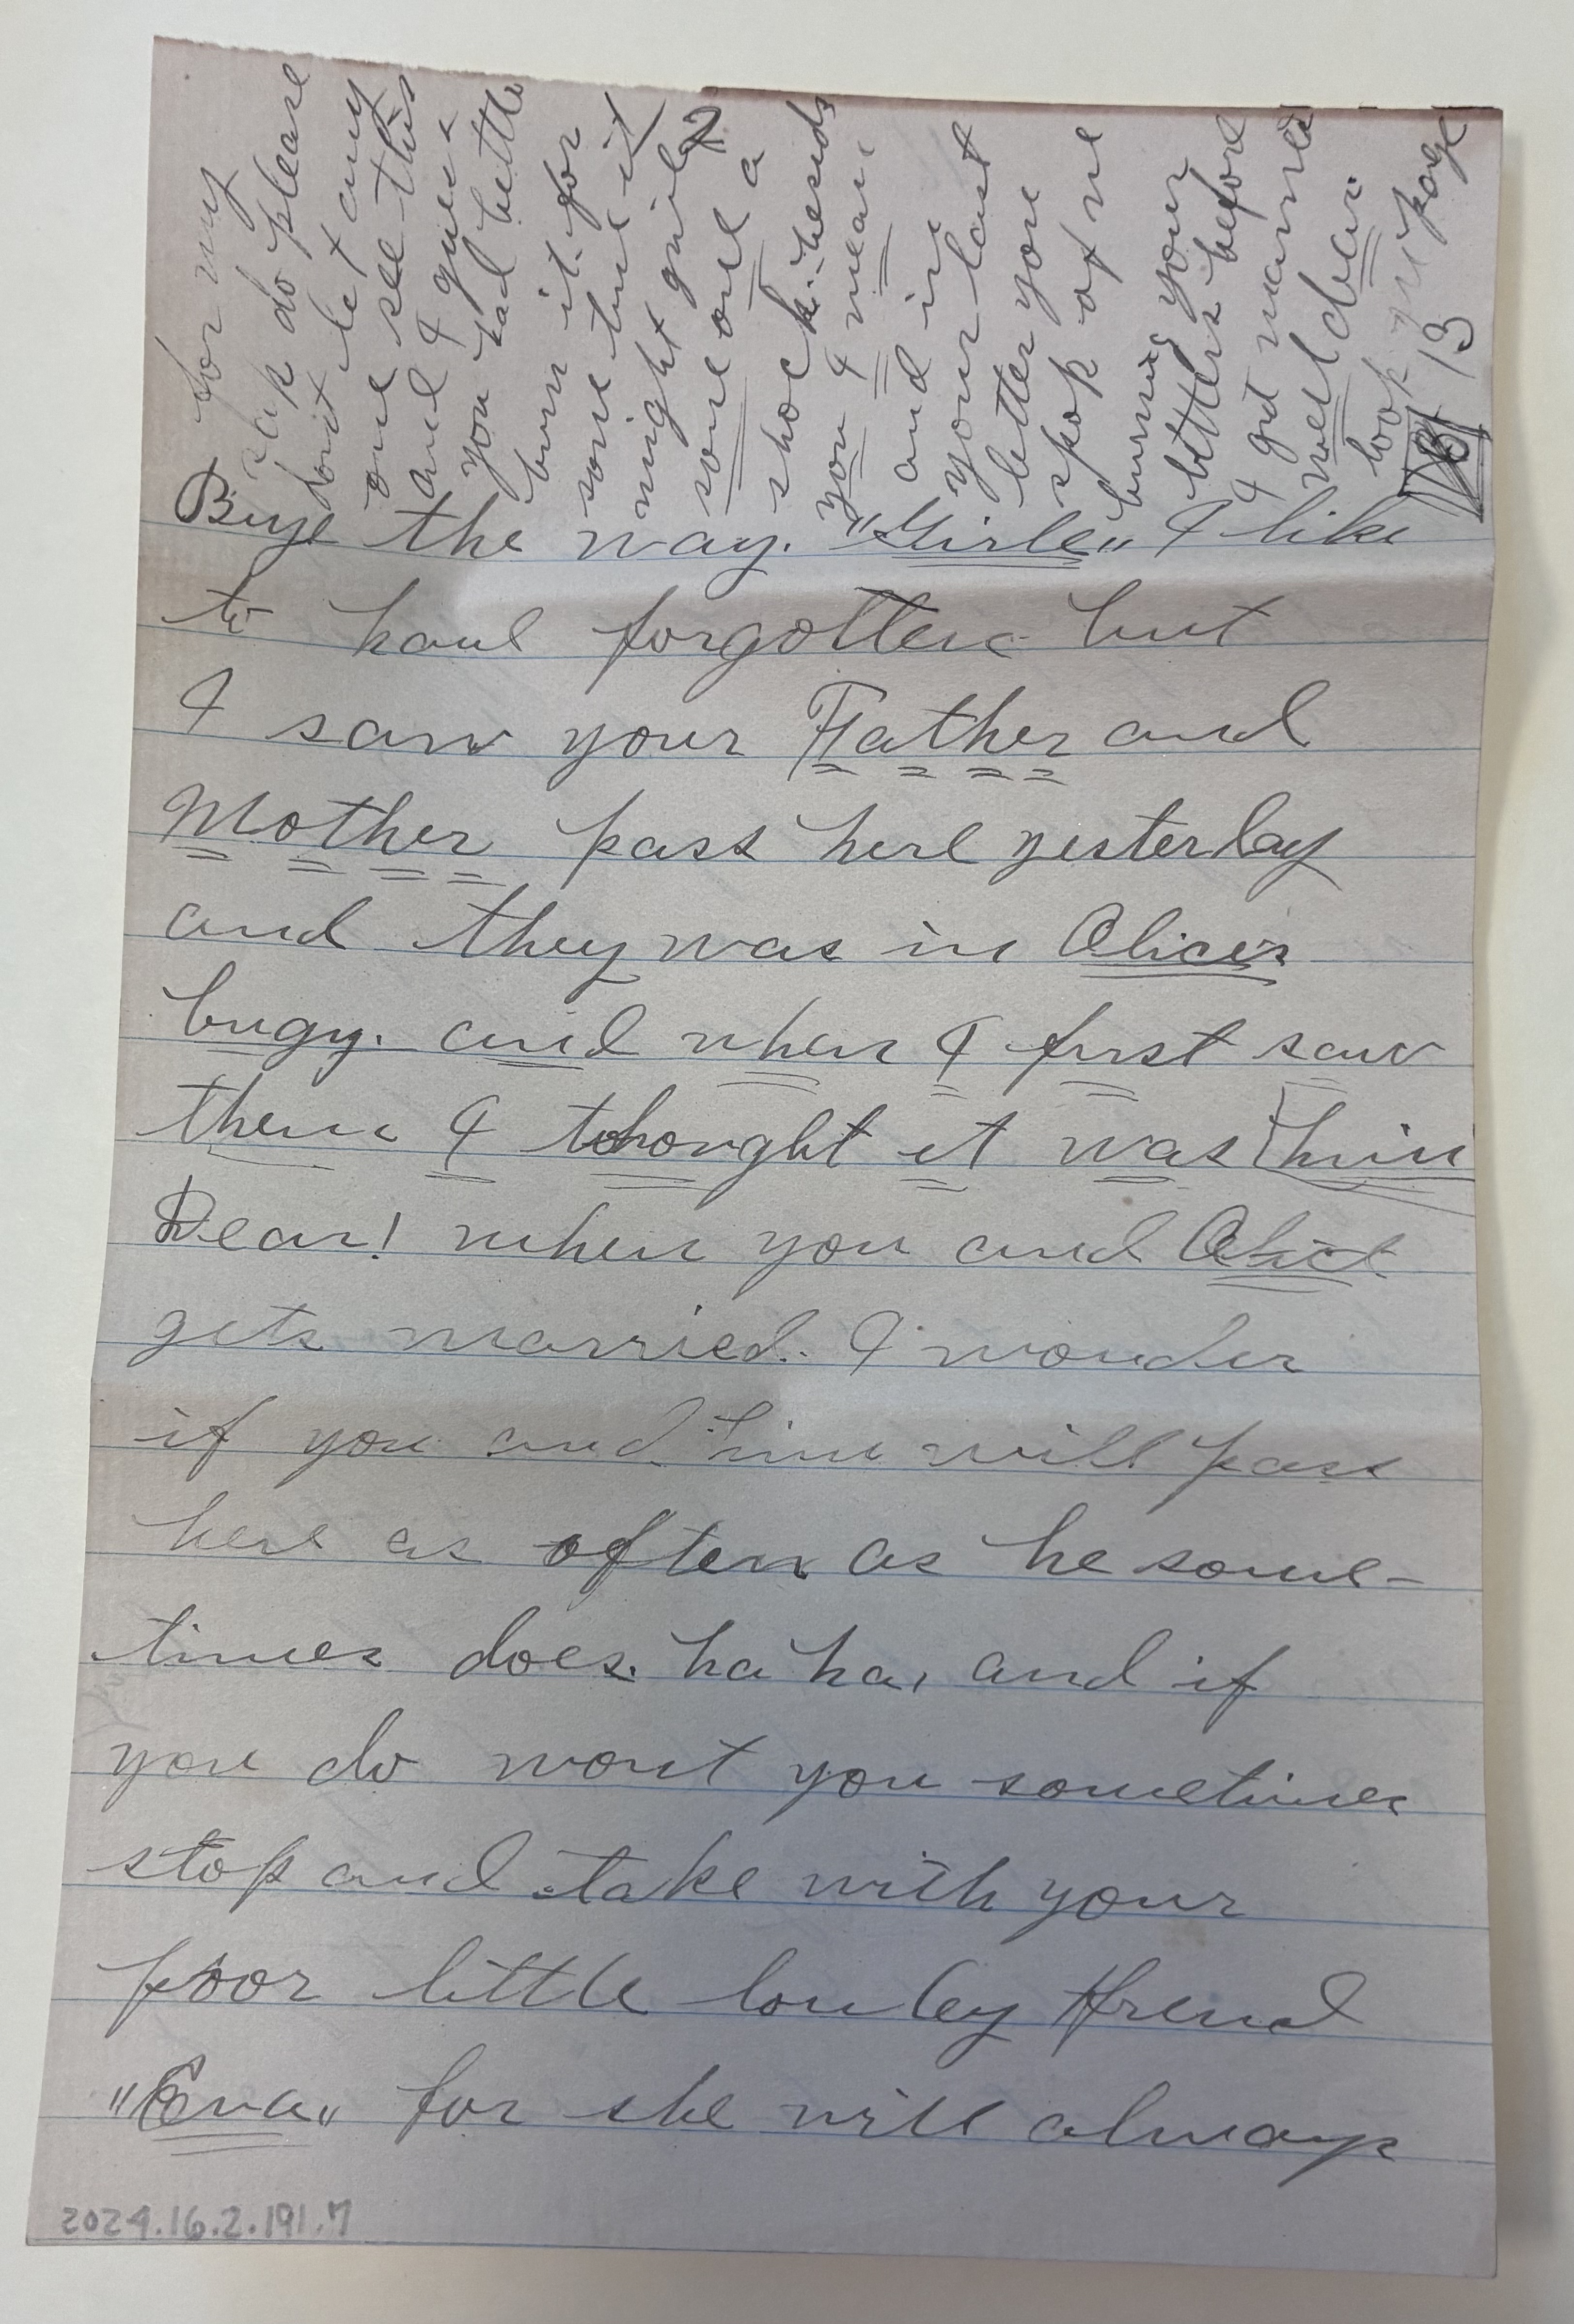 for my
sak do please
dont let any
one see this
and I guess
you had bettr
burn it. for
some time it
might give
some one a
shock. besids
you & mean
and in
your last
letter you
spok of me
burning your
letters before
I got married
well dear
look on page
13
Buye the way. "Girle" I like
to have forgotten but
I saw your Father and
Mother pass here yesterday
and they was in Alices
bugy. and when I first saw
them I thought it was him
Dear! when you and Alict
gets married. I wonder
if you and him will pass
here as often as he some-
times does. ha ha, and if
you do wont you sometimes
stop and take with your
poor little lonley frend
"Eva" for she will always
2024.16.2.191.7